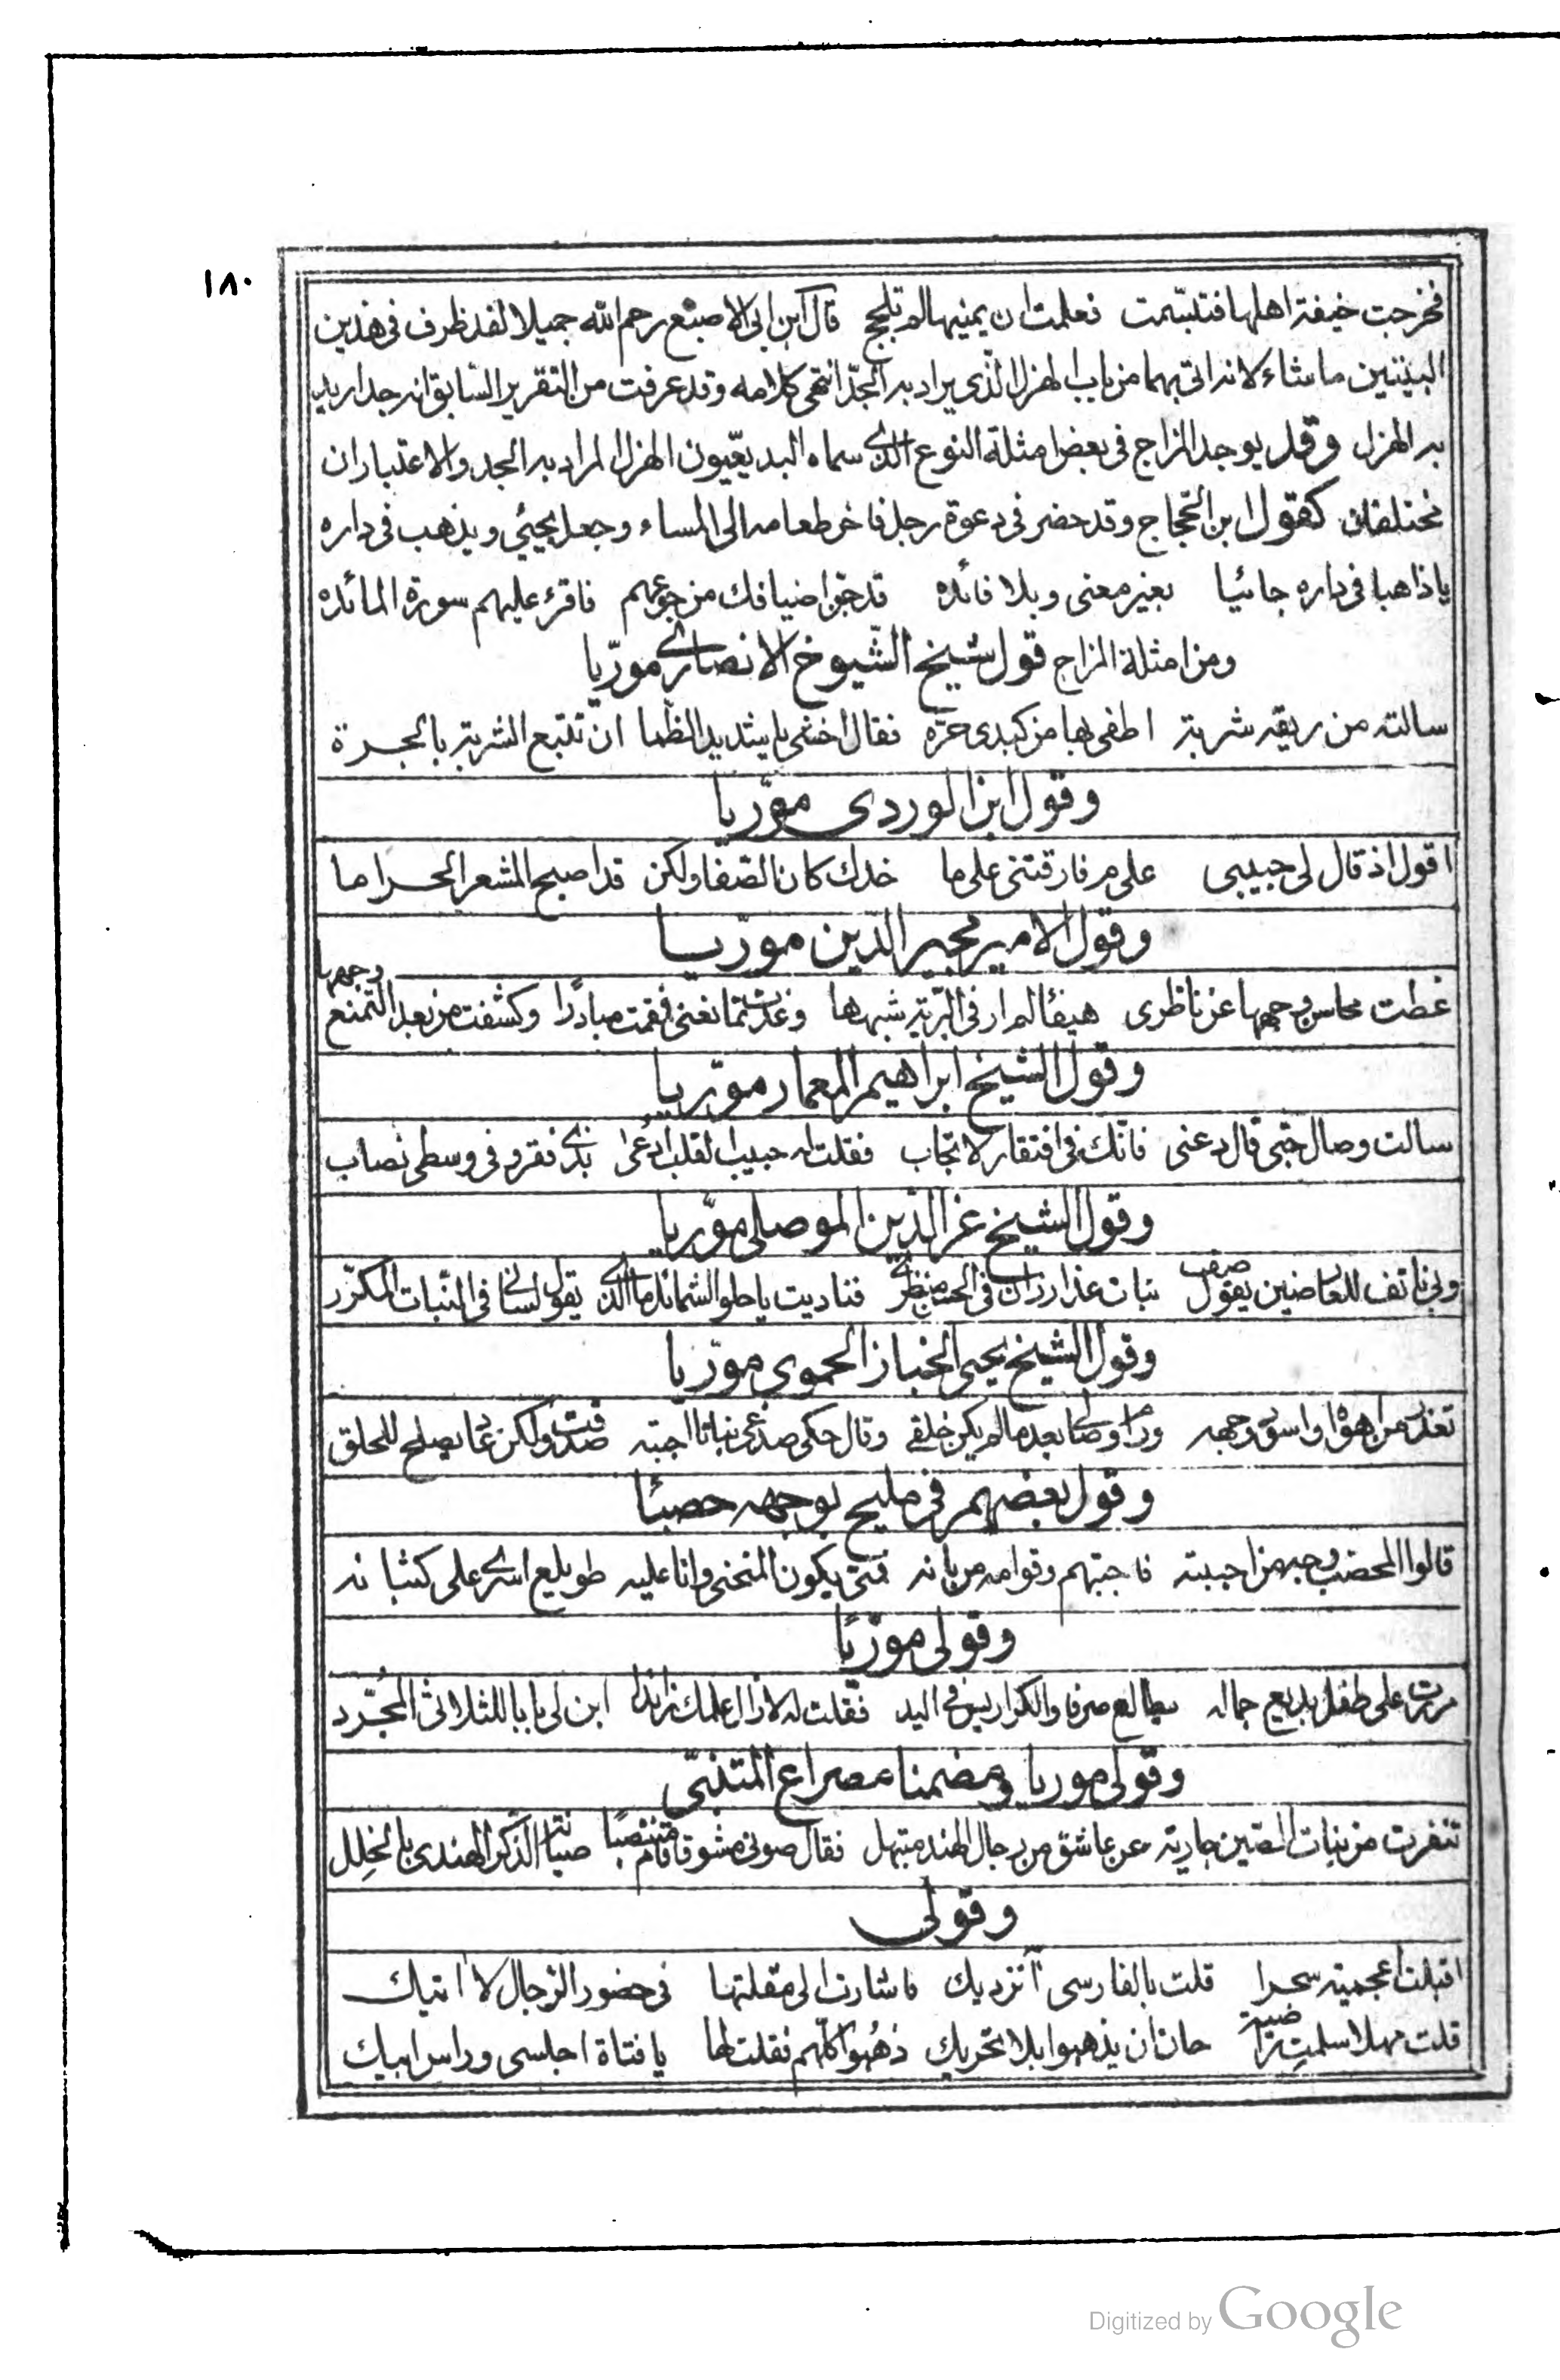 ١٨٠
فخرجت خيفة اهلها فتبسّمت فعلمت ان يمينها لم تلجج قال ابن ابي الاصبع رحمه الله جميلا لقد ظرف في هذين
البيتين ما شاء لانه اتى بهما من باب الهزل الذي يراد به الجدّ انتهى كلامه وقد عرفت من التقرير السّابق انه جد اريد
به الهزل وقد يوجد المزاج في بعض امثلة النوع الذي سماه البديعيّون الهزل المراد به الجد والاعتباران
مختلفان كقول ابن الحجّاج وقد حضر في دعوة رجل فاخر طعامه الى المساء وجعل يجيئ ويذهب في داره
يا ذاهبا في داره جائيا بغير معنى وبلا فائده قد جنّ اضيافك من جوعهم فاقرء عليهم سورة المائده
ومن امثلة المزاج قول شيخ الشّيوخ الانصاري مورّيا
سالته من ريقه شربة اطفى بها من كبدى حرّه فقال اخشى يا شديد الظّما ان تتبع الشربة بالجرة
وقول ابن الوردى مورّيا
اقول اذ قال لى حبيبى على م فارقتنى على ما خدك كان الصّفا ولكن قد اصبح المشعر الحراما
وقول الامير مجير الدّين مورّيا
غطت محاسن وجهها عن ناظرى هيفا لم ار في البريّة شبهها وغدت تمانعنى فقمت مبادرا وكشفت من بعد التمنع وجهها
وقول الشيخ ابراهيم المعمار مورّيا
سالت وصال حبّى قال دعنى فانّك في افتقار لا تجاب فقلت له حبيب القلب ادعى بذى فقر وفي وسطى نصاب
وقول الشيخ عز الدّين الموصلى مورّيا
وبي ناتف للعارضين يقول صف نبات عذار زان في الحسن منظرى فناديت يا حلو الشمائل ما الذى يقول لسانى في النّبات المكرّر
وقول الشيخ يحيى الخباز الحموى مورّيا
تعذّر من اهوى واسوّ وجهه ورام وصالا بعد ما لم يكن خلقى وقال حكى صدغى نباتا اجبته صدقت ولكن عاد يصلح للحلق
وقول بعضهم في مليح بوجهه حصبا
قالوا المحصّب وجه من احببته فاجبتهم وقوامه من بانه فمتى يكون المنحنى وانا عليه طويلع اسرى على كثبانه
وقولى مورّيا
مررت على طفل بديع جماله يطالع صرفا والكراريس في اليد فقلت له لا زال علمك زائدا ابن لى بابا للثلاثى المجرّد
وقولى موريا ومضمنا مصراع المتنبّى
تنفرت من بنات الصّين جارية عن عاشق من رجال الهند مبتهل فقال صونى مشوقا قام منتصبا صيانة الذّكر الهندى بالخلل
وقولى
اقبلت اعجمية سحرا قلت بالفارسى آ نزديك فاشارت الى مقلتها في حضور الرّجال لا اتيك
قلت مهلا اسلمت راضية حان ان يذهبوا بلا تحريك ذهبوا كلّهم فقلت لها يا فتاة اجلسى وراس ابيك
Digitized by Google